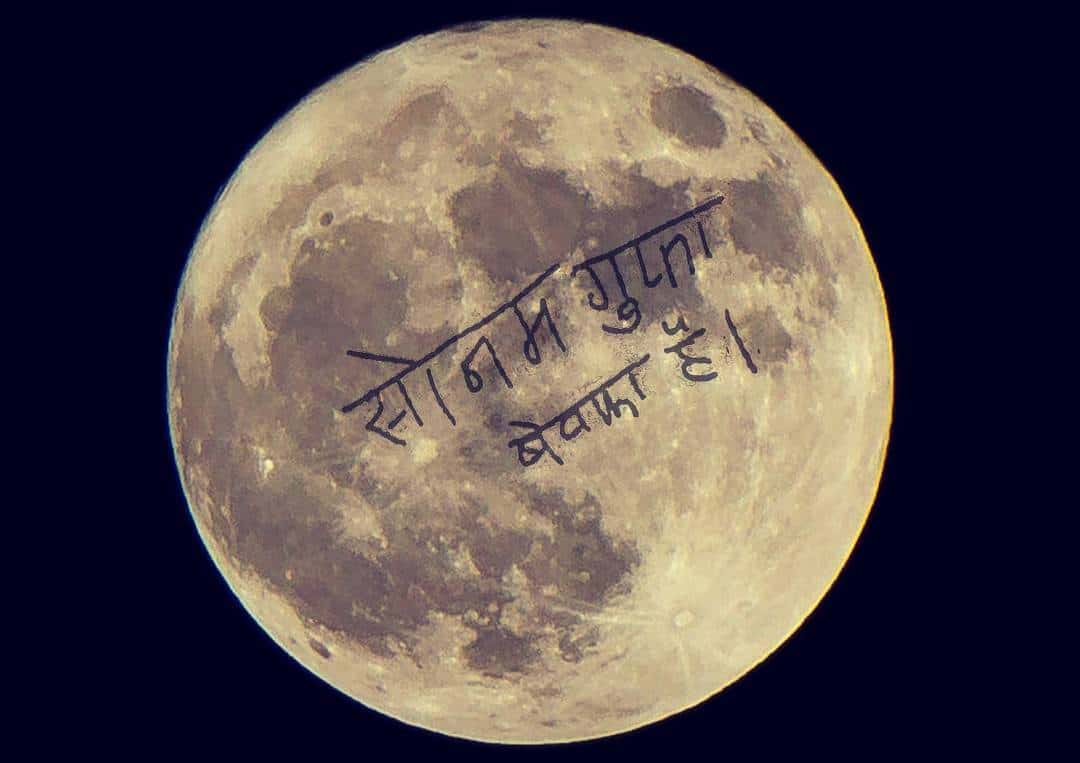 सोनम गुप्ता
बेवफा है।